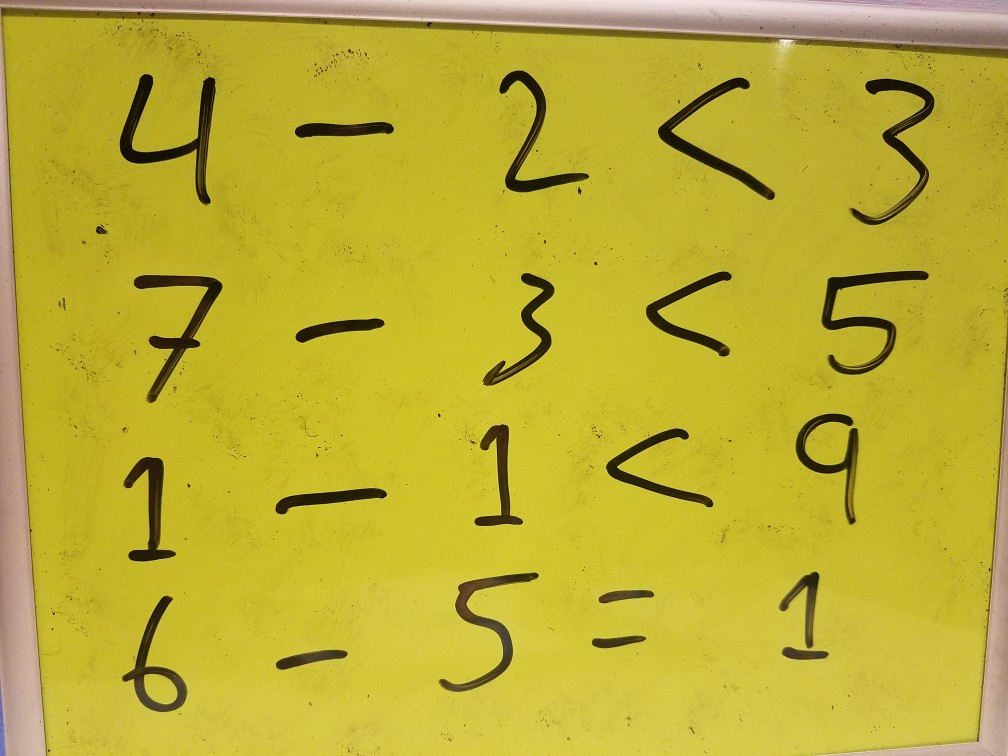 4 - 2 < 3
7 - 3 < 5
1 - 1 < 9
6 - 5 = 1